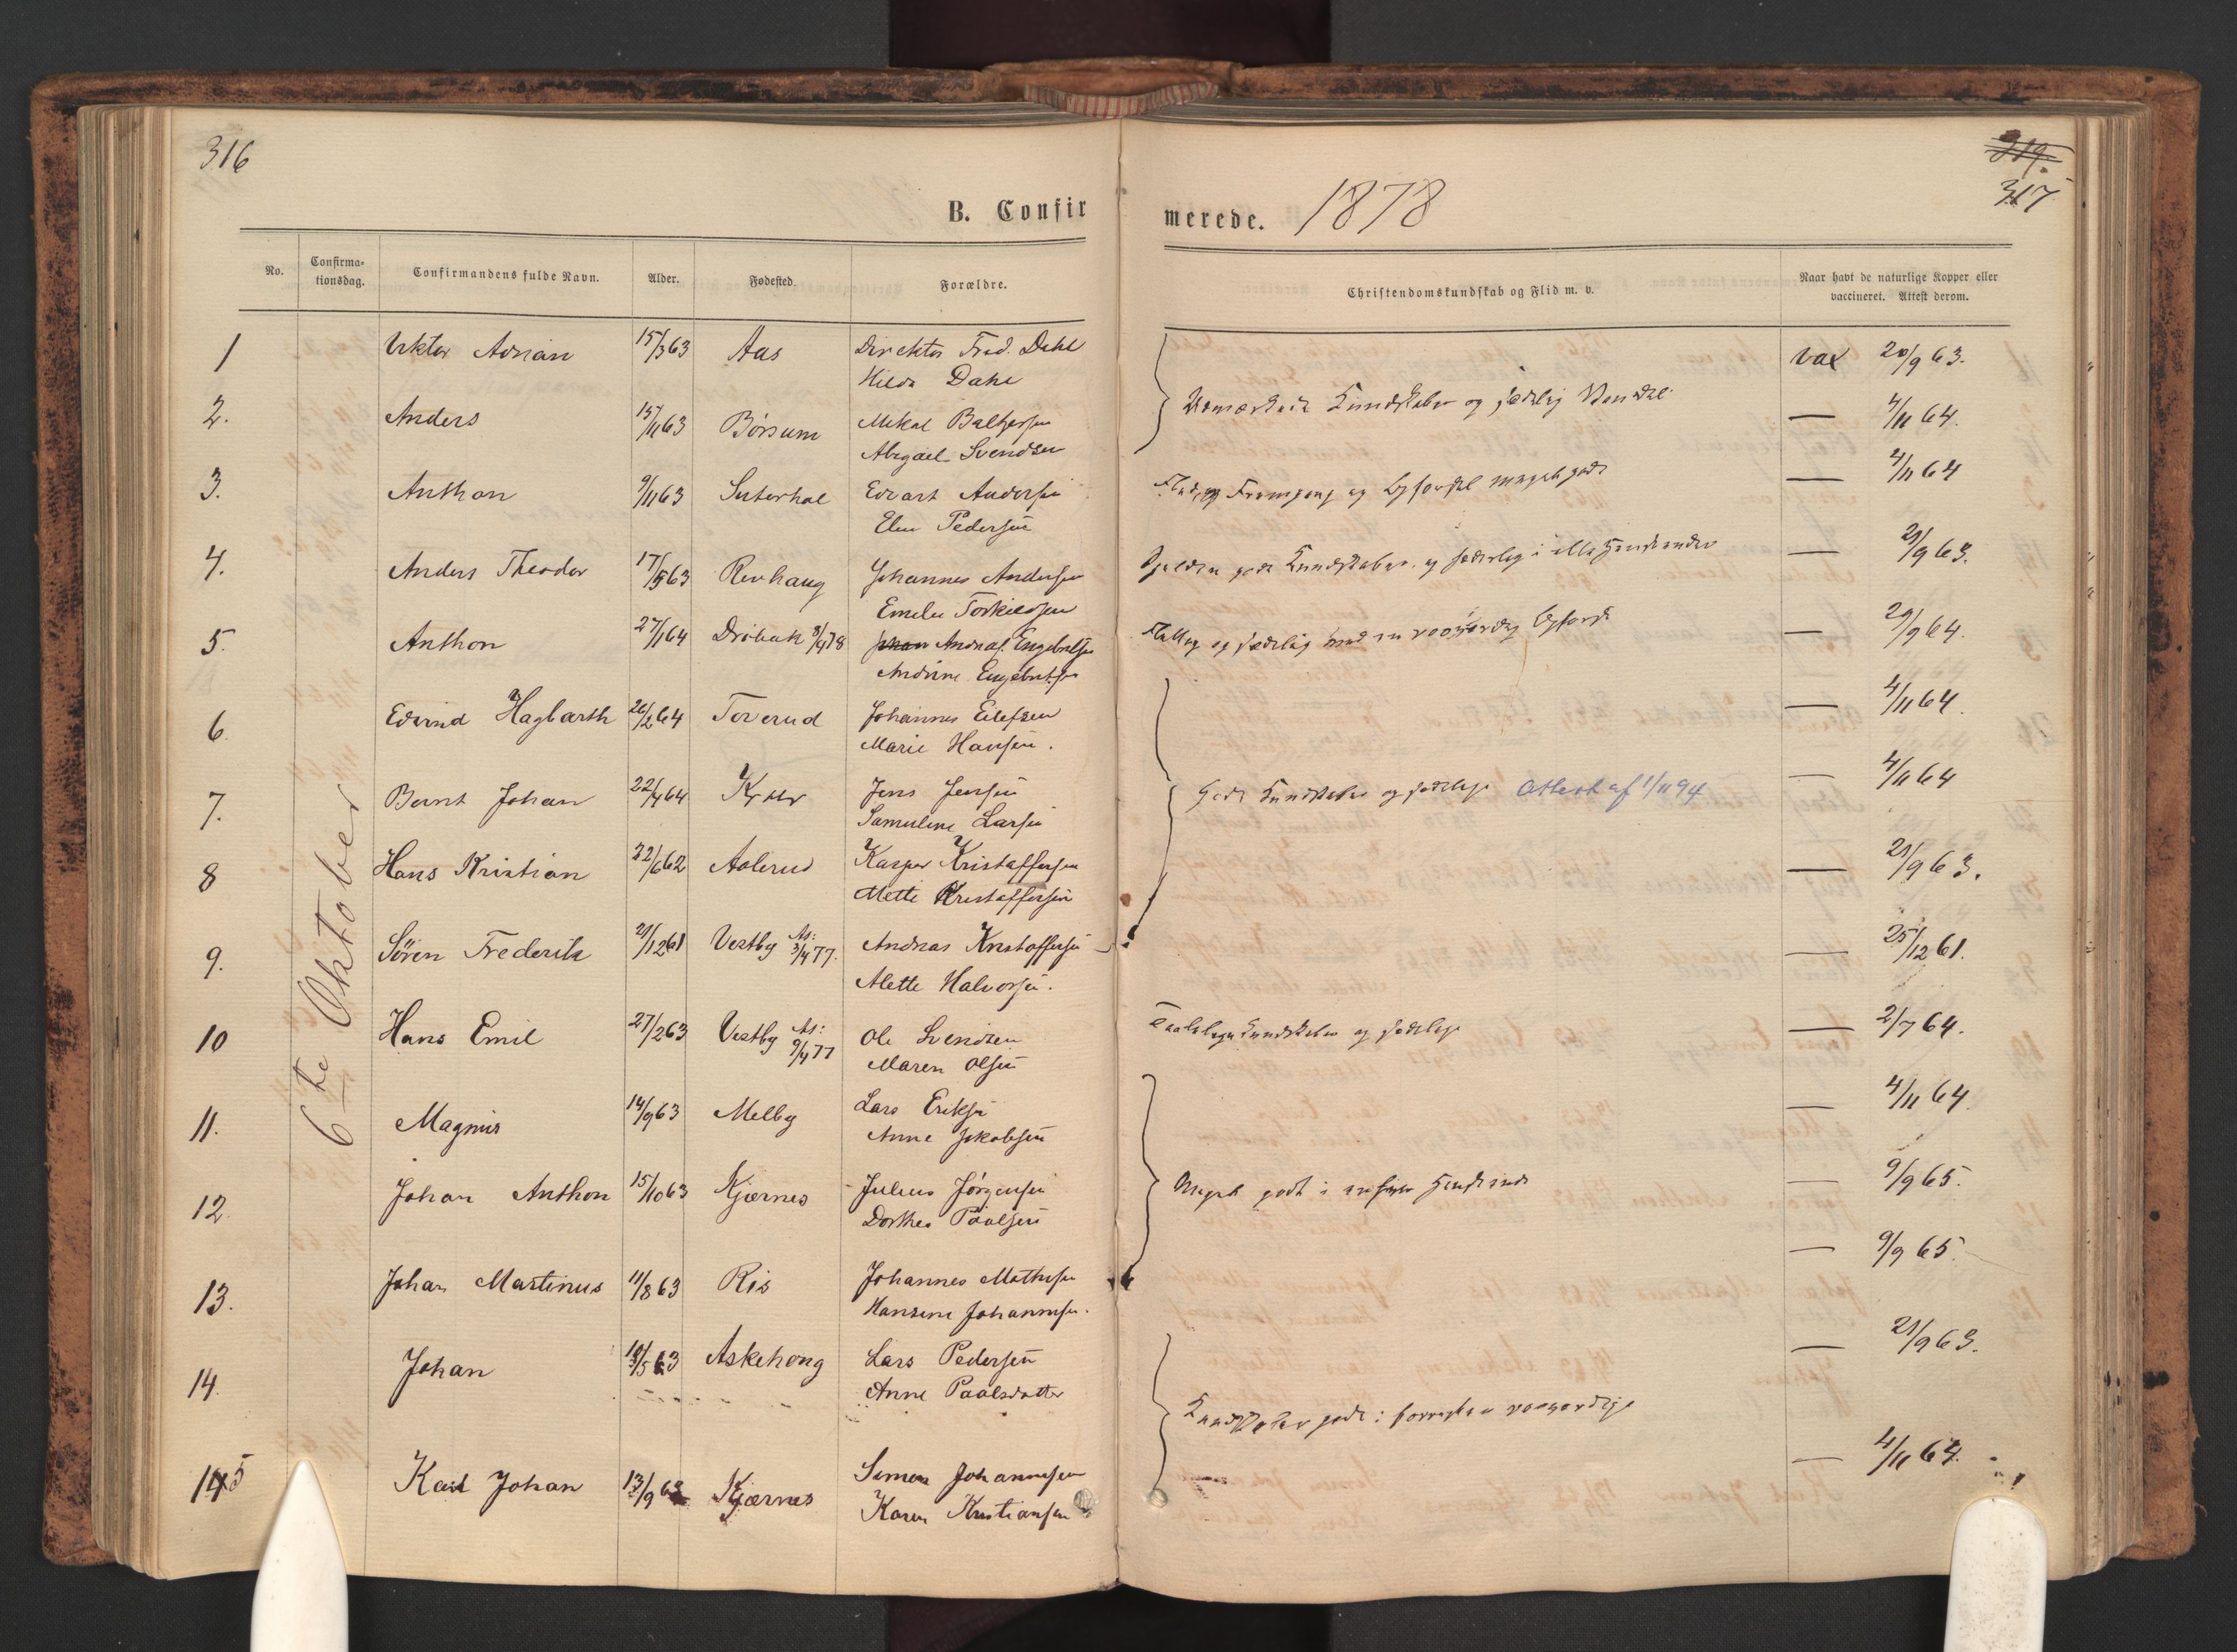 316
319.
317
B. Confirmerede. 1878
No. Confirmationsdag. Confirmandens fulde Navn. Alder. Fødested. Forældre. Christendomskundskab og Flid m. v. Naar havt de naturlige Kopper eller vaccineret. Attest derom.
6te Oktober
1 Viktor Adrian 15/3 63 Aas Direktør Fred. Dahl vax 20/9 63.
Hilda Dahl
Udmærkede Kundskaber og sædelig Vandel
2. Anders 15/11 63 Børsum Mikal Baltzersen — 4/11 64.
Abigael Svendsen
3. Anthon 9/11 63 Suterhol Edvart Andersen Flid og Fremgang og Opførsel meget godt — 4/11 64
Elen Pedersen
4. Anders Theodor 17/5 63 Revhaug Johannes Andersen gode Kundskaber og sædelig i — 21/9 63.
Emelie Torkildsen
5. Anthon 27/1 64 Drøbak 8/9 78 Andreas Engebretsen og sædelig med en Opførsel — 29/9 64.
Andrine Engebretsen
6. Edvind Hagbarth 26/2 64 Toverud Johannes Eilefsen — 4/11 64.
Marie Hansen.
7. Bernt Johan 22/4 64 Jens Jensen Gode Kundskaber og sædelige Attest af 1/11 94 — 4/11 64
Samuline Larsen
8 Hans Kristian 22/6 62 Aalerud Kasper Kristoffersen — 21/9 63.
Mette Kristoffersen
9. Søren Frederik 21/12 61 Vestby As: 3/4 77. Andreas Kristoffersen — 25/12 61.
Alette Halvorsen.
10 Hans Emil 27/2 63 Vestby As: 9/4 77 Ole Svendsen Taalelige Kundskaber og sædelige — 2/7 64.
Maren Olsen
11. Magnus 14/9 63 Melby Lars Eriksen — 4/11 64.
Anne Jakobsen
12. Johan Anthon 15/10 63 Kjærnes Julius Jørgensen Meget godt i Henseende — 9/9 65.
Dorthea Paalsen
13. Johan Martinus 11/8 63 Ris Johannes Mathisen — 9/9 65.
Hansine Johannesen.
14. Johan 10/5 63 Askehoug Lars Pedersen — 21/9 63.
Anne Paalsdatter
Kundskaber gode i
15 Karl Johan 13/9 63 Kjærnes Simen Johannesen — 4/11 64.
Karen Kristiansen